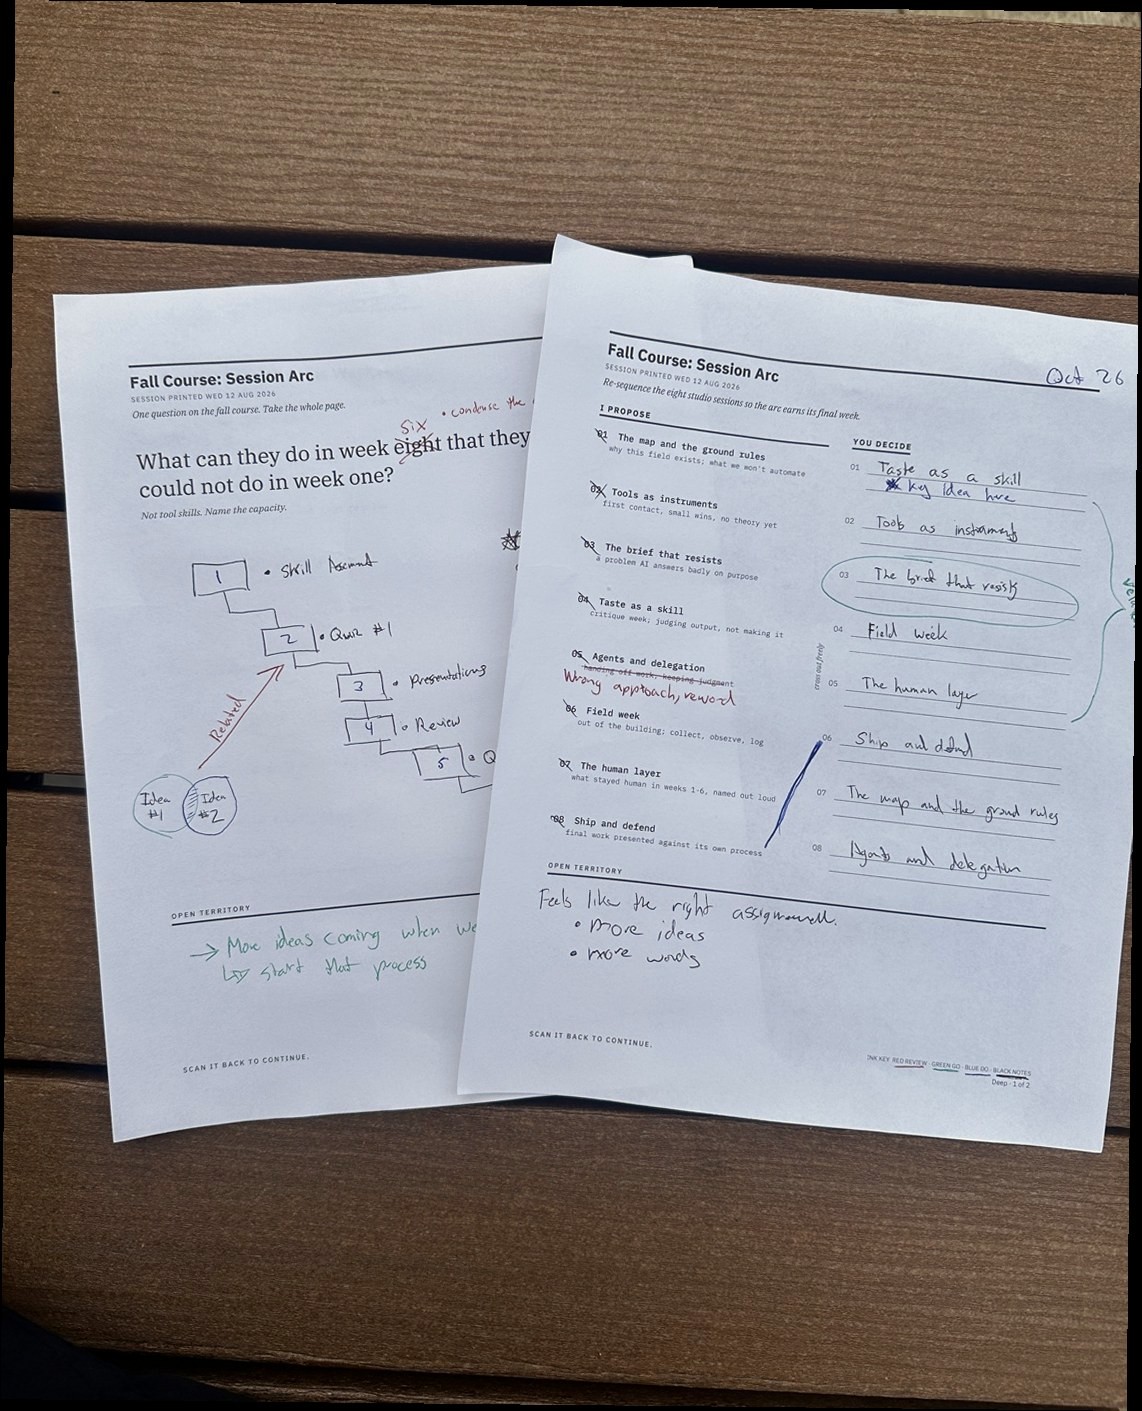 Fall Course: Session Arc
SESSION PRINTED WED 12 AUG 2026
One question on the fall course. Take the whole page.
six
• condense the
What can they do in week eight that they
could not do in week one?
Not tool skills. Name the capacity.
1 • Skill
2 • Quiz #1
3 • Presentations
4 • Review
5 • Q
Related
Idea #1
Idea #2
OPEN TERRITORY
→ More ideas coming when we
↳ start that process
SCAN IT BACK TO CONTINUE.
Fall Course: Session Arc
SESSION PRINTED WED 12 AUG 2026
Re-sequence the eight studio sessions so the arc earns its final week.
Oct 26
I PROPOSE
01 The map and the ground rules
why this field exists; what we won't automate
02 Tools as instruments
first contact, small wins, no theory yet
03 The brief that resists
a problem AI answers badly on purpose
04 Taste as a skill
critique week; judging output, not making it
05 Agents and delegation
handing off work, keeping judgment
Wrong approach, reword
06 Field week
out of the building; collect, observe, log
07 The human layer
what stayed human in weeks 1-6, named out loud
08 Ship and defend
final work presented against its own process
YOU DECIDE
01 Taste as a skill
Key Idea here
02 Tools as instruments
03 The brief that resists
04 Field week
cross out freely
05 The human layer
06 Ship and defend
07 The map and the ground rules
08 Agents and delegation
OPEN TERRITORY
Feels like the right assignment.
• more ideas
• more words
SCAN IT BACK TO CONTINUE.
INK KEY RED REVIEW · GREEN GO · BLUE DO · BLACK NOTES
Deep · 1 of 2